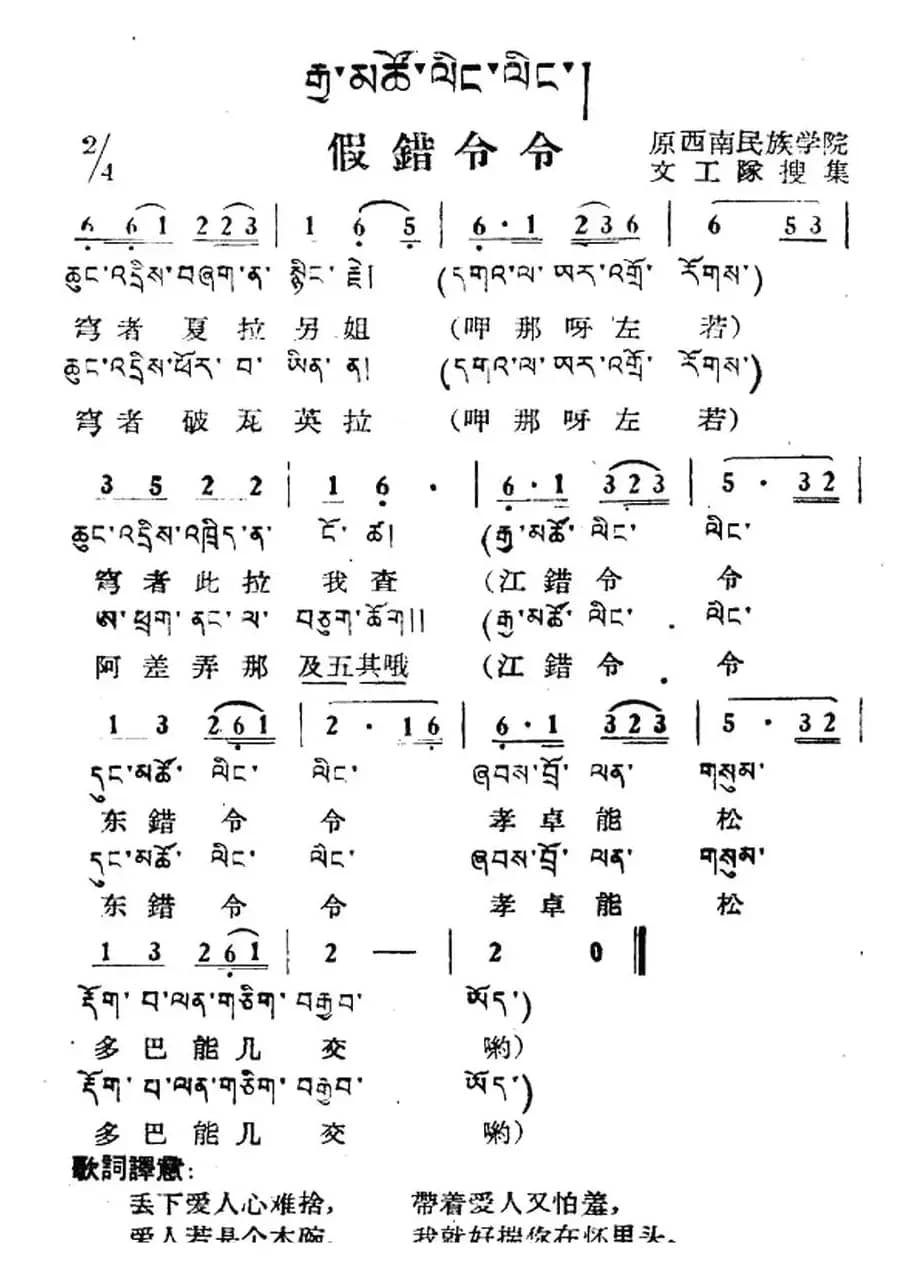 རྒྱ་མཚོ་ལིང་ལིང་།
假錯令令
2/4
原西南民族学院
文工隊搜集
6 6 1 2 2 3 | 1 6 5 | 6 · 1 2 3 6 | 6 5 3 |
ཆུང་འདྲིས་བཞག་ན་ སྙིང་ རྗེ། (དགའ་ལ་ ཨར་འགྲོ་ རོགས་)
穹者 夏拉另姐 (呷那呀左 若)
ཆུང་འདྲིས་ཕོར་ བ་ ཡིན་ ན། (དགའ་ལ་ ཨར་འགྲོ་ རོགས་)
穹者 破瓦英拉 (呷那呀左 若)
3 5 2 2 | 1 6 · | 6 · 1 3 2 3 | 5 · 3 2 |
ཆུང་འདྲིས་འཁྲིད་ན་ ངོ་ ཚ། (རྒྱ་མཚོ་ ལིང་ ལིང་
穹者此拉我查 (江錯令 令
ཨ་ཕྲག་ ནང་ ལ་ བཅུག་ཆོག།། (རྒྱ་མཚོ་ ལིང་ ལིང་
阿差弄那及五其哦 (江錯令 令
1 3 2 6 1 | 2 · 1 6 | 6 · 1 3 2 3 | 5 · 3 2 |
དུང་མཚོ་ ལིང་ ལིང་ ཞབས་བྲོ་ ལན་ གསུམ་
东錯令 令 孝卓能 松
དུང་མཚོ་ ལིང་ ལིང་ ཞབས་བྲོ་ ལན་ གསུམ་
东錯令 令 孝卓能 松
1 3 2 6 1 | 2 — | 2 0 ‖
རྡོག་ པ་ལན་གཅིག་ བརྒྱབ་ ཡོད་)
多巴能几 交 喲)
རྡོག་ པ་ལན་གཅིག་ བརྒྱབ་ ཡོད་)
多巴能几 交 喲)
歌詞譯意:
丢下爱人心难捨, 帶着愛人又怕羞,
爱人若是个木碗, 我就好揣你在怀里头。